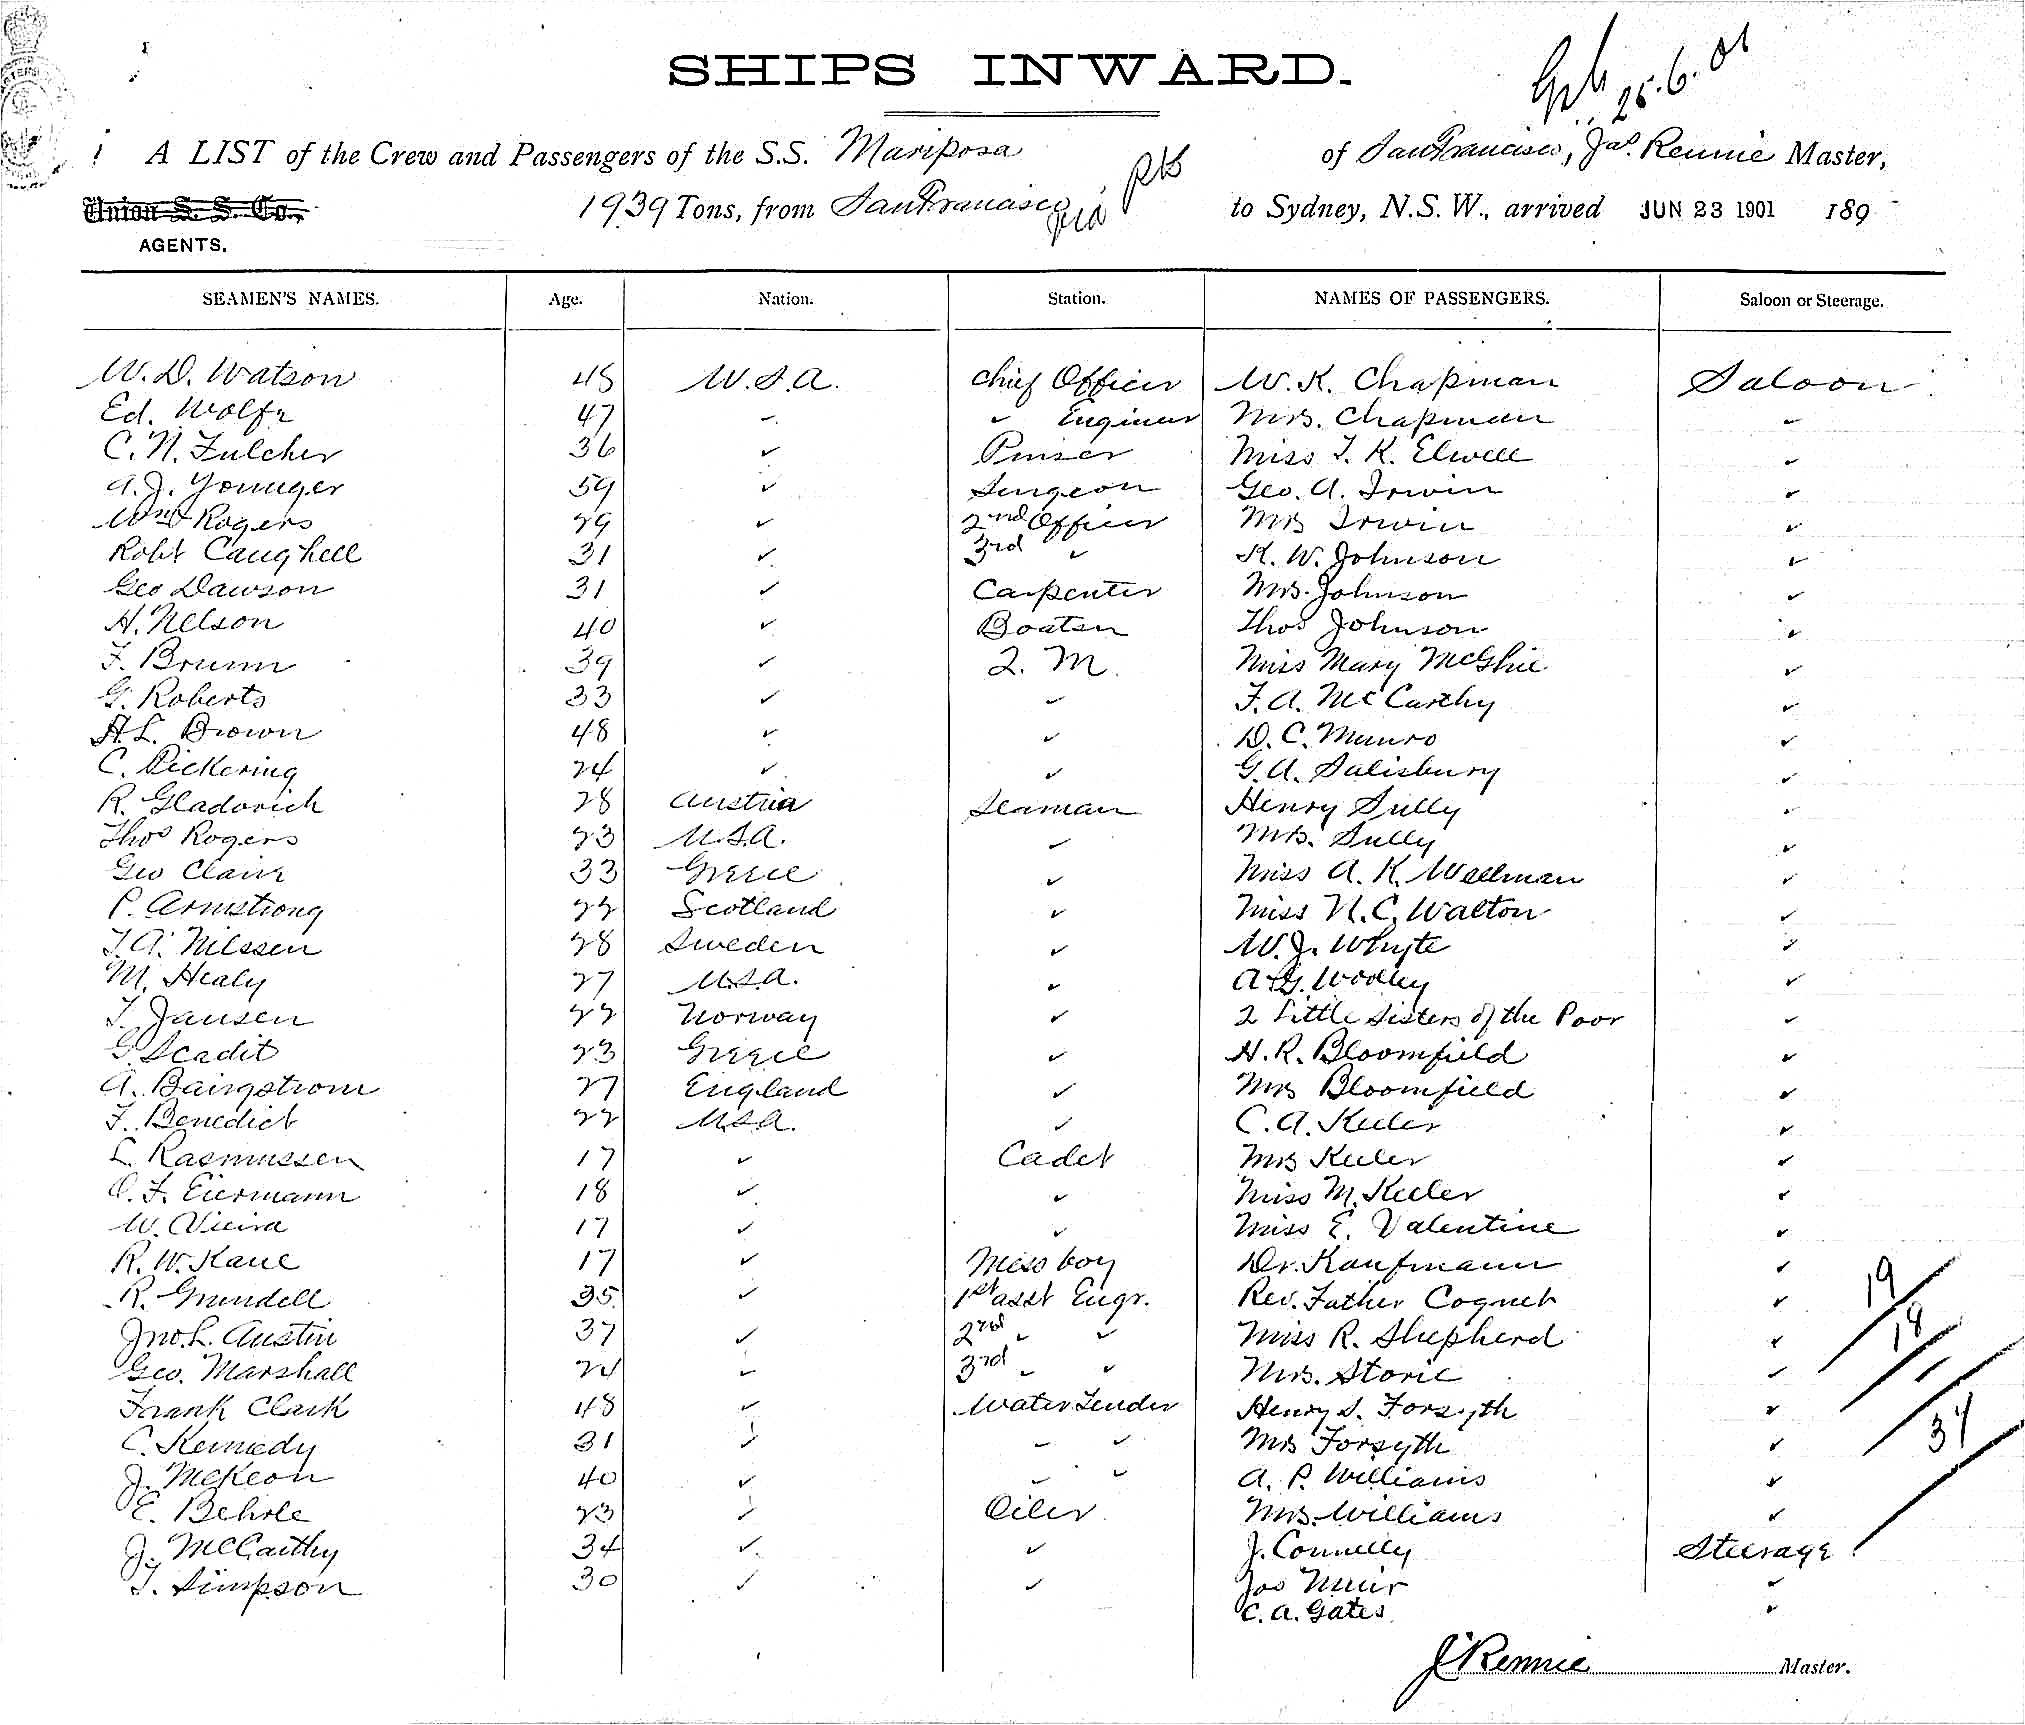 SHIPS INWARD.
25.6.01
A LIST of the Crew and Passengers of the S.S. Mariposa of San Francisco, Jas. Rennie Master,
Union S. S. Co., 1939 Tons, from San Francisco to Sydney, N.S.W., arrived JUN 23 1901 189
AGENTS.
SEAMEN'S NAMES. Age. Nation. Station. NAMES OF PASSENGERS. Saloon or Steerage.
W. D. Watson 45 U.S.A. Chief Officer W. K. Chapman Saloon
Ed. Wolfe 47 " " Engineer Mrs. Chapman "
C. N. Fulcher 36 " Purser Miss T. K. Elwell "
A. J. Younger 59 " Surgeon Geo. A. Irwin "
Wm Rogers 29 " 2nd Officer Mrs Irwin "
Robt Caughell 31 " 3rd " K. W. Johnson "
Geo Dawson 31 " Carpenter Mrs. Johnson "
H. Nelson 40 " Boatsn Thos Johnson "
F. Brunn 39 " Q. M. Miss Mary McGhie "
G. Roberts 33 " " F. A. McCarthy "
A. L. Brown 48 " " D. C. Munro "
C. Pickering 24 " " G. A. Salisbury "
R. Gladovich 28 Austria Seaman Henry Sully "
Thos Rogers 23 U.S.A. " Mrs. Sully "
Geo Clair 33 Greece " Miss A. K. Wellman "
P. Armstrong 22 Scotland " Miss N. C. Walton "
T. A. Nilssen 28 Sweden " W. J. Whyte "
M. Healy 27 U.S.A. " A. G. Woolley "
T. Jansen 22 Norway " 2 Little Sisters of the Poor "
G. Scadit 23 Greece " H. R. Bloomfield "
A. Bairgstrom 27 England " Mrs Bloomfield "
F. Benedict 22 U.S.A. " C. A. Keeler "
L. Rasmussen 17 " Cadet Mrs Keeler "
O. F. Eiermann 18 " " Miss M. Keeler "
W. Vieira 17 " " Miss E. Valentine "
R. W. Kane 17 " Mess boy Dr. Kaufmann "
R. Grundell 35 " 1st asst Engr. Rev. Father Cognet " 19
Jno. L. Austin 37 " 2nd " " Miss R. Shepherd " 18
Geo. Marshall 24 " 3rd " " Mrs. Storie "
Frank Clark 48 " Water Tender Henry S. Forsyth "
C. Kennedy 31 " " " Mrs Forsyth " 37
J. McKeon 40 " " " A. P. Williams "
E. Behrle 23 " Oiler Mrs. Williams "
J. McCarthy 34 " " J. Connelly Steerage
T. Simpson 30 " " Jos Muir "
C. A. Gates "
J Rennie Master.